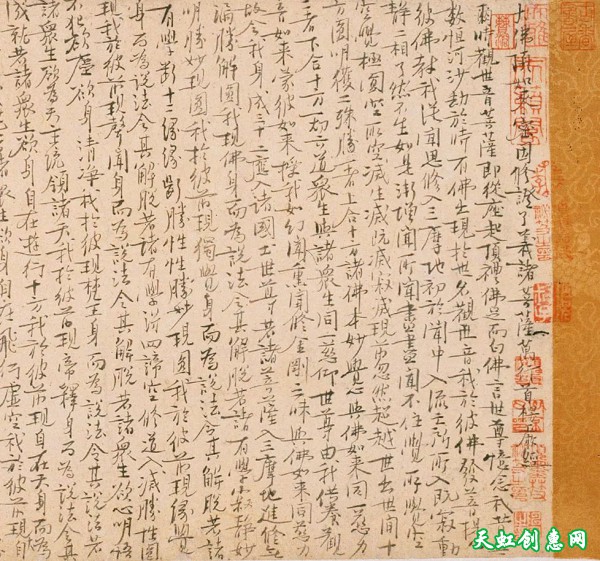 大佛頂如來密因修證了義諸菩薩萬行首楞嚴經
爾時觀世音菩薩即從座起頂禮佛足而白佛言世尊憶念我昔無
數恒河沙劫於時有佛出現於世名觀世音我於彼佛發菩提
彼佛教我從聞思修入三摩地初於聞中入流亡所所入既寂動
靜二相了然不生如是漸增聞所聞盡盡聞不住覺所覺空
空覺極圓空所空滅生滅既滅寂滅現前忽然超越世出世間十
方圓明獲二殊勝一者上合十方諸佛本妙覺心與佛如來同一慈力
二者下合十方一切六道眾生與諸眾生同一悲仰世尊由我供養觀
音如來蒙彼如來授我如幻聞薰聞修金剛三昧與佛如來同慈力
故令我身成三十二應入諸國土世尊若諸菩薩入三摩地進修無
漏勝解現圓我現佛身而為說法令其解脫若諸有學寂靜妙
明勝妙現圓我於彼前現獨覺身而為說法令其解脫若諸
有學斷十二緣緣斷勝性勝妙現圓我於彼前現緣覺
身而為說法令其解脫若諸有學得四諦空修道入滅勝性圓
現我於彼前現聲聞身而為說法令其解脫若諸眾生欲心明悟
不犯欲塵欲身清淨我於彼前現梵王身而為說法令其解脫若
諸眾生欲為天主統領諸天我於彼前現帝釋身而為說法令其
成就若諸眾生欲身自在遊行十方我於彼前現自在天身而為
眾生欲身自在飛行虛空我於彼前現大自
天虹创惠网